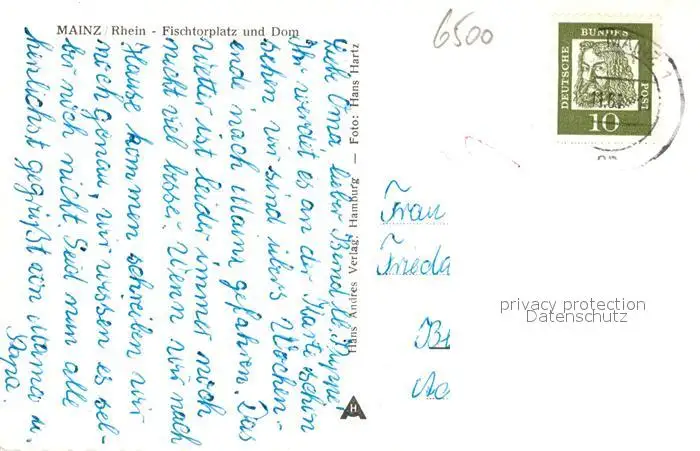 MAINZ/Rhein - Fischtorplatz und Dom
6500
DEUTSCHE BUNDESPOST
10
MAINZ 1
Liebe Oma, lieber Bernd
Ihr werdet es an der Karte schon
sehen wir sind übers Wochen-
ende nach Mainz gefahren. Das
Wetter ist leider immer noch
nicht viel besser. Wenn wir nach
Hause kommen schreiben wir
noch genau, wir wissen es sel-
ber noch nicht. Seid nun alle
herzlichst gegrüßt von Mama u.
Papa.
Hans Andres Verlag, Hamburg — Foto: Hans Hartz
H
Frau
Frieda
privacy protection
Datenschutz